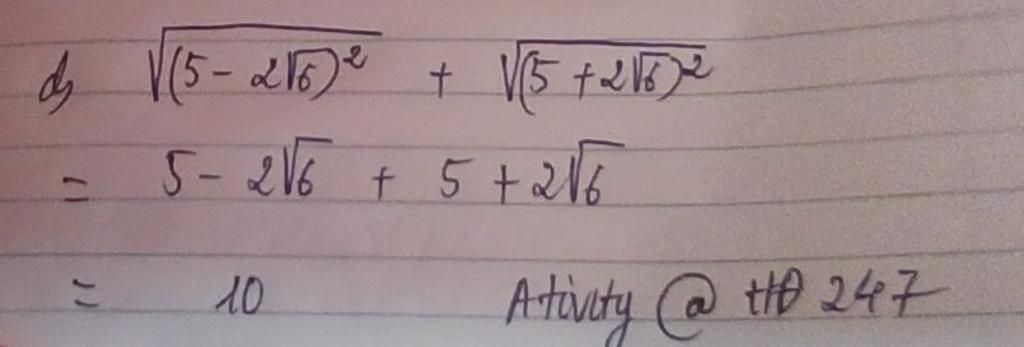 d, √(5 - 2√6)² + √(5 + 2√6)²
= 5 - 2√6 + 5 + 2√6
= 10 Ativity @ HĐ 247